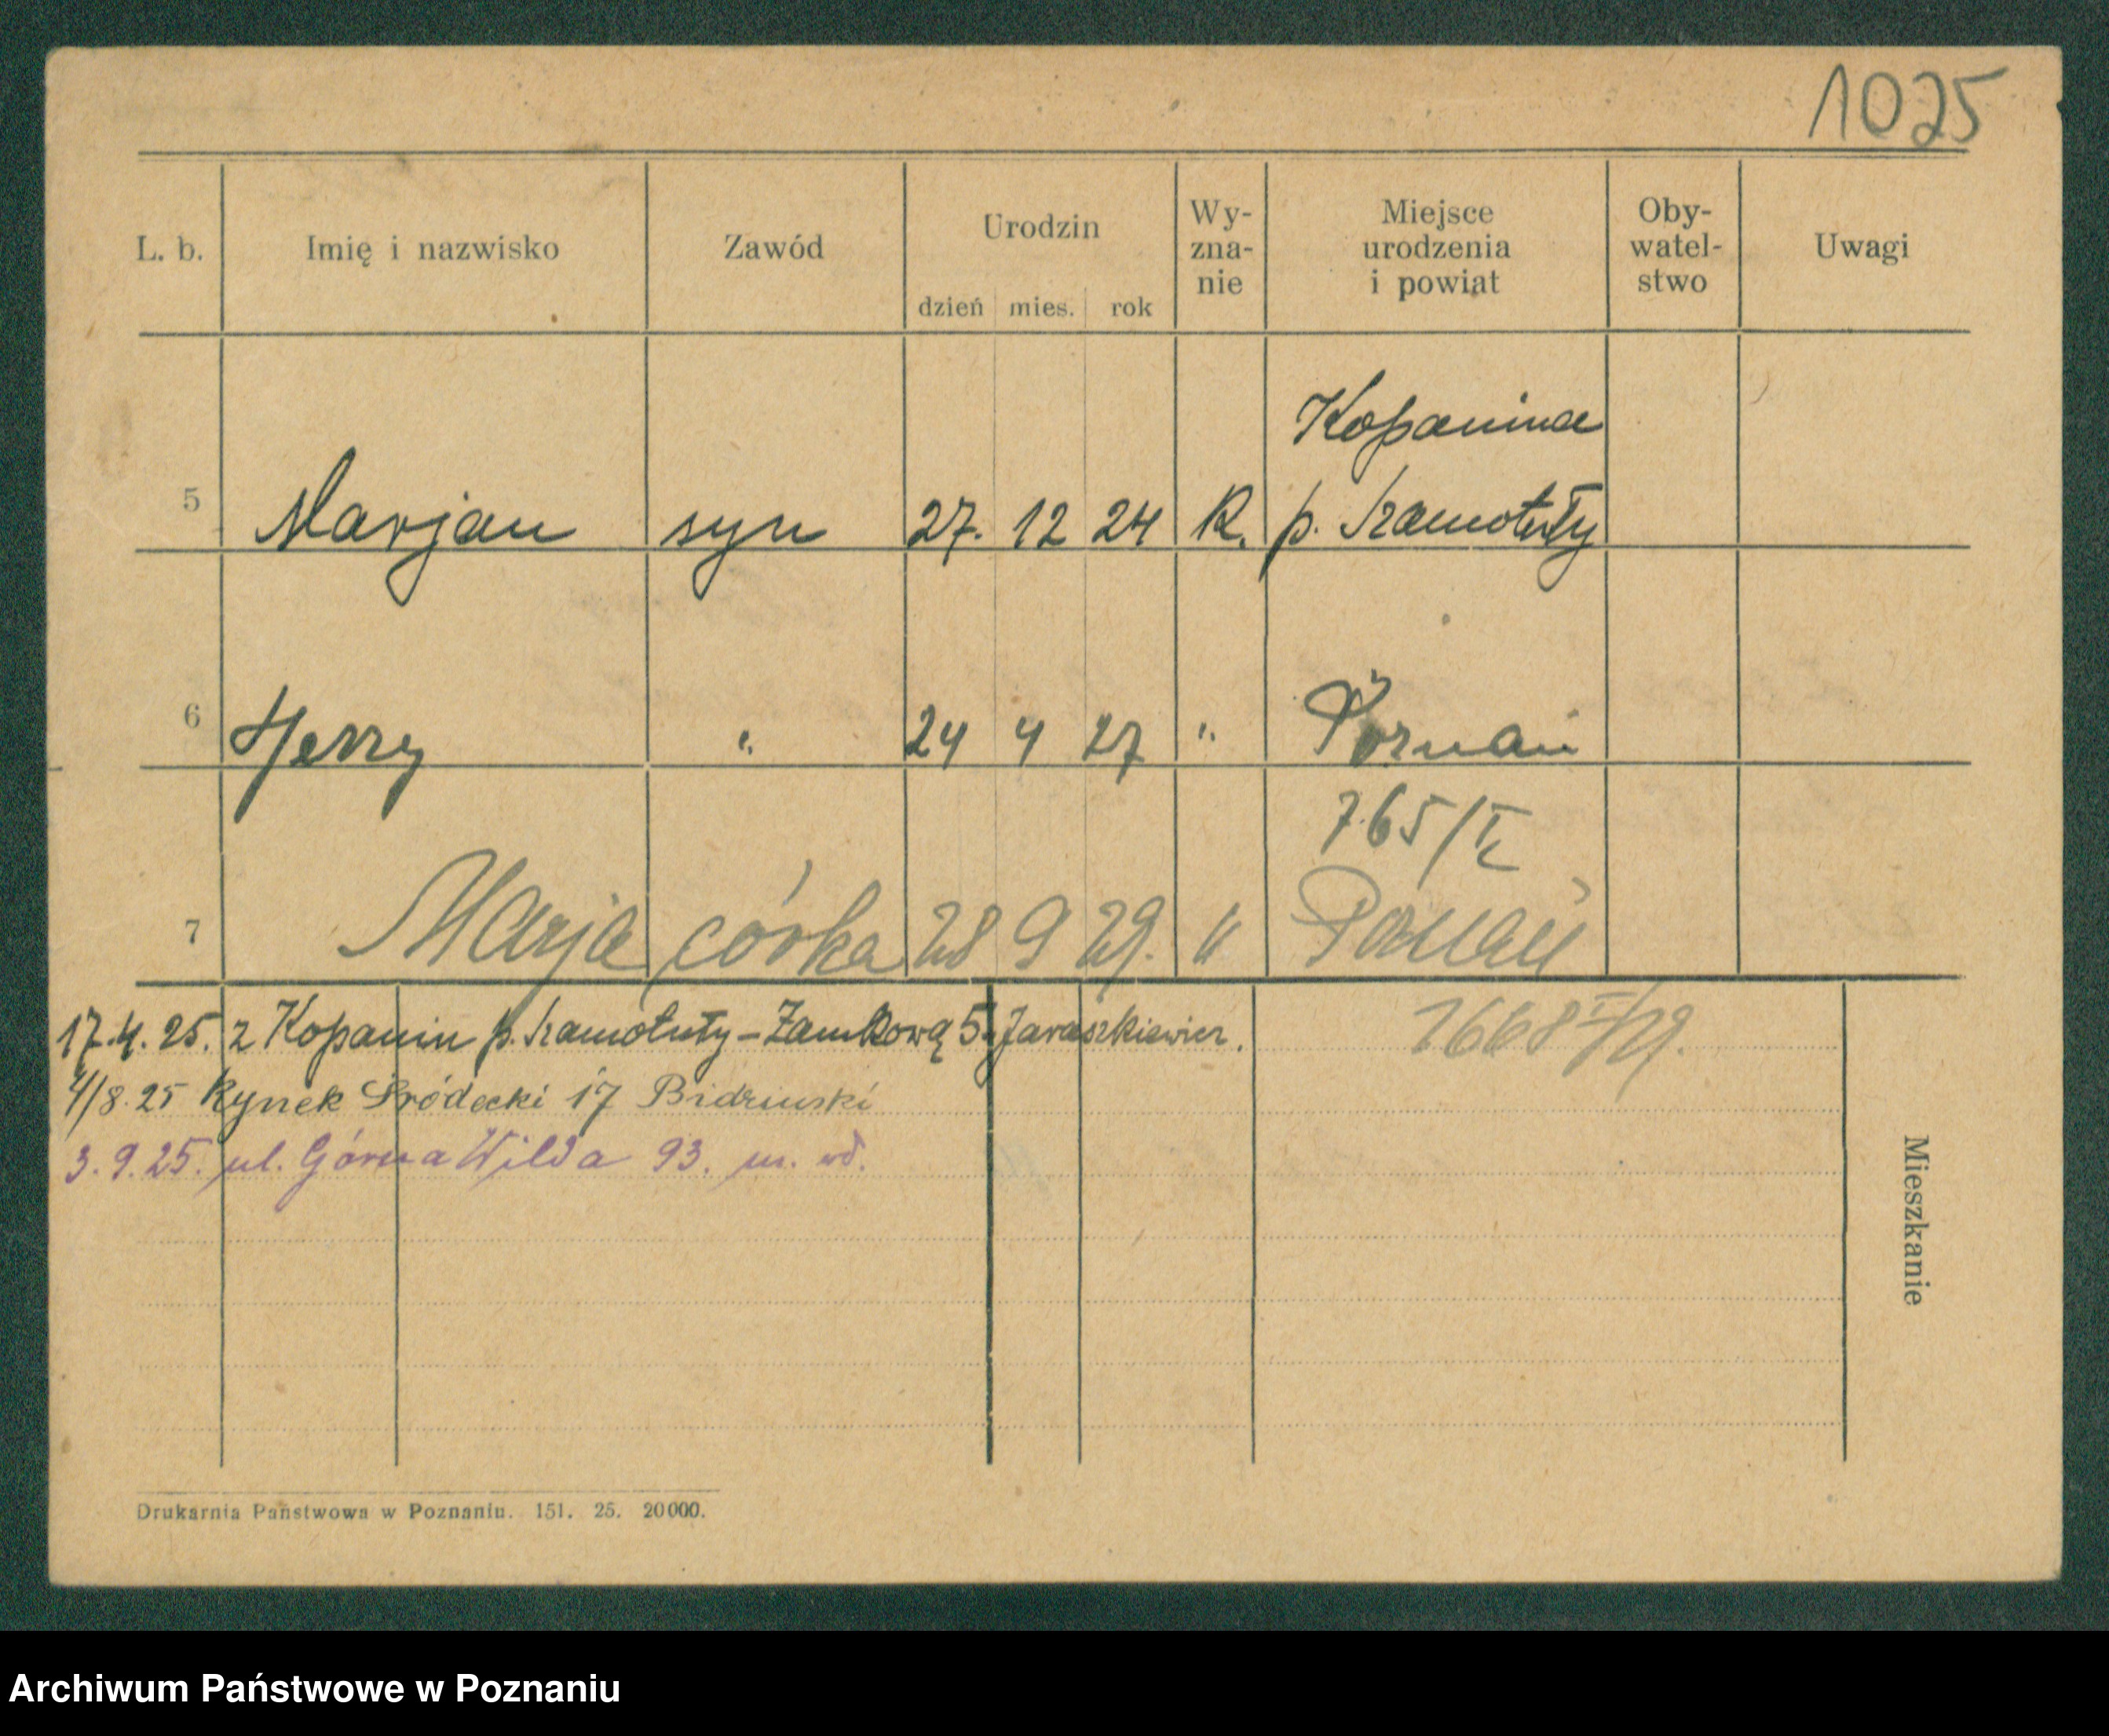 1025
L. b. Imię i nazwisko Zawód Urodzin dzień mies. rok Wy-zna-nie Miejsce urodzenia i powiat Oby-watel-stwo Uwagi
Kopanina
5 Marjan syn 27. 12 24 R. p. Szamotuły
6 Jerzy " 24 4 27 " Poznań
765/II
7 Marja córka 28 9 29. " Poznań
17.4.25. z Kopanin p. Szamotuły – Zamkową 5 Jaraszkiewicz.
4/8.25 Rynek Śródecki 17 Bidziński
3.9.25. ul. Górna Wilda 93.
Mieszkanie
Drukarnia Państwowa w Poznaniu. 151. 25. 20000.
Archiwum Państwowe w Poznaniu